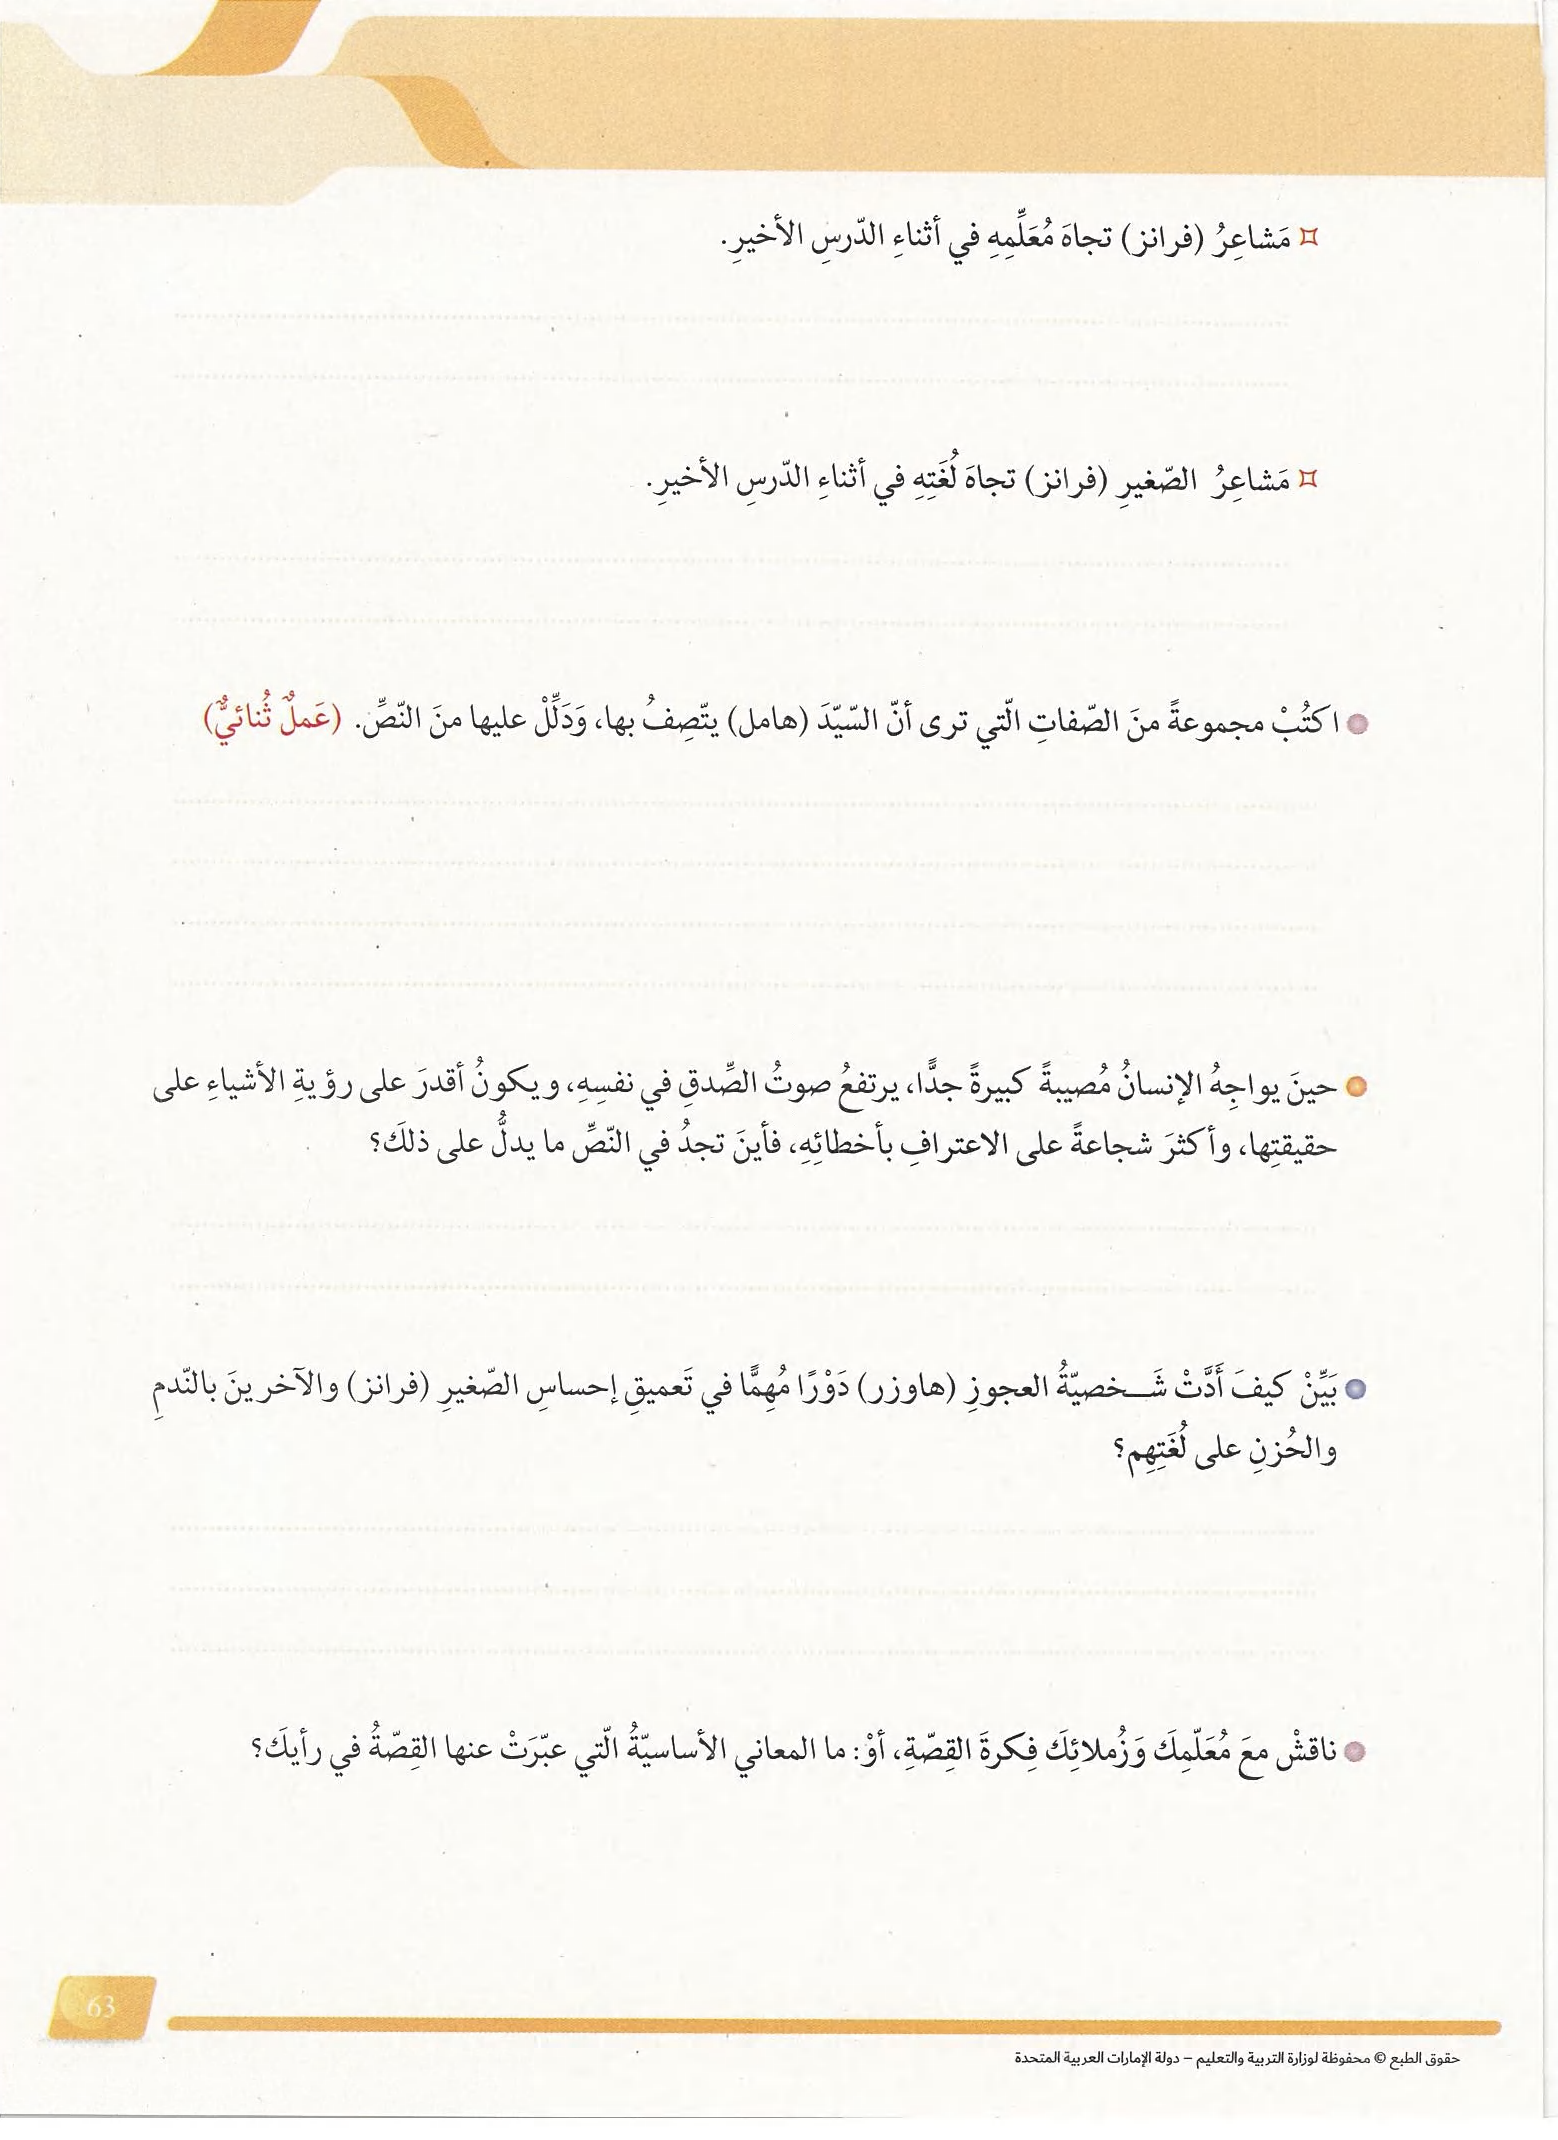 ¤ مَشاعِرُ (فرانز) تجاهَ مُعَلِّمِهِ في أثناءِ الدّرسِ الأخيرِ.
¤ مَشاعِرُ الصّغيرِ (فرانز) تجاهَ لُغَتِهِ في أثناءِ الدّرسِ الأخيرِ.
● اكتُبْ مجموعةً منَ الصّفاتِ الّتي ترى أنّ السّيّدَ (هامل) يتّصِفُ بها، وَدَلِّلْ عليها منَ النّصِّ. (عَملٌ ثُنائيٌّ)
● حينَ يواجِهُ الإنسانُ مُصيبةً كبيرةً جدًّا، يرتفعُ صوتُ الصِّدقِ في نفسِهِ، ويكونُ أقدرَ على رؤيةِ الأشياءِ على
حقيقتِها، وأكثرَ شجاعةً على الاعترافِ بأخطائِهِ، فأينَ تجدُ في النّصِّ ما يدلُّ على ذلكَ؟
● بَيِّنْ كيفَ أَدَّتْ شَـخصيّةُ العجوزِ (هاوزر) دَوْرًا مُهِمًّا في تَعميقِ إحساسِ الصّغيرِ (فرانز) والآخرينَ بالنّدمِ
والحُزنِ على لُغَتِهِم؟
● ناقشْ معَ مُعَلّمِكَ وَزُملائِكَ فِكرةَ القِصّةِ، أوْ: ما المعاني الأساسيّةُ الّتي عبّرَتْ عنها القِصّةُ في رأيكَ؟
63
حقوق الطبع © محفوظة لوزارة التربية والتعليم – دولة الإمارات العربية المتحدة